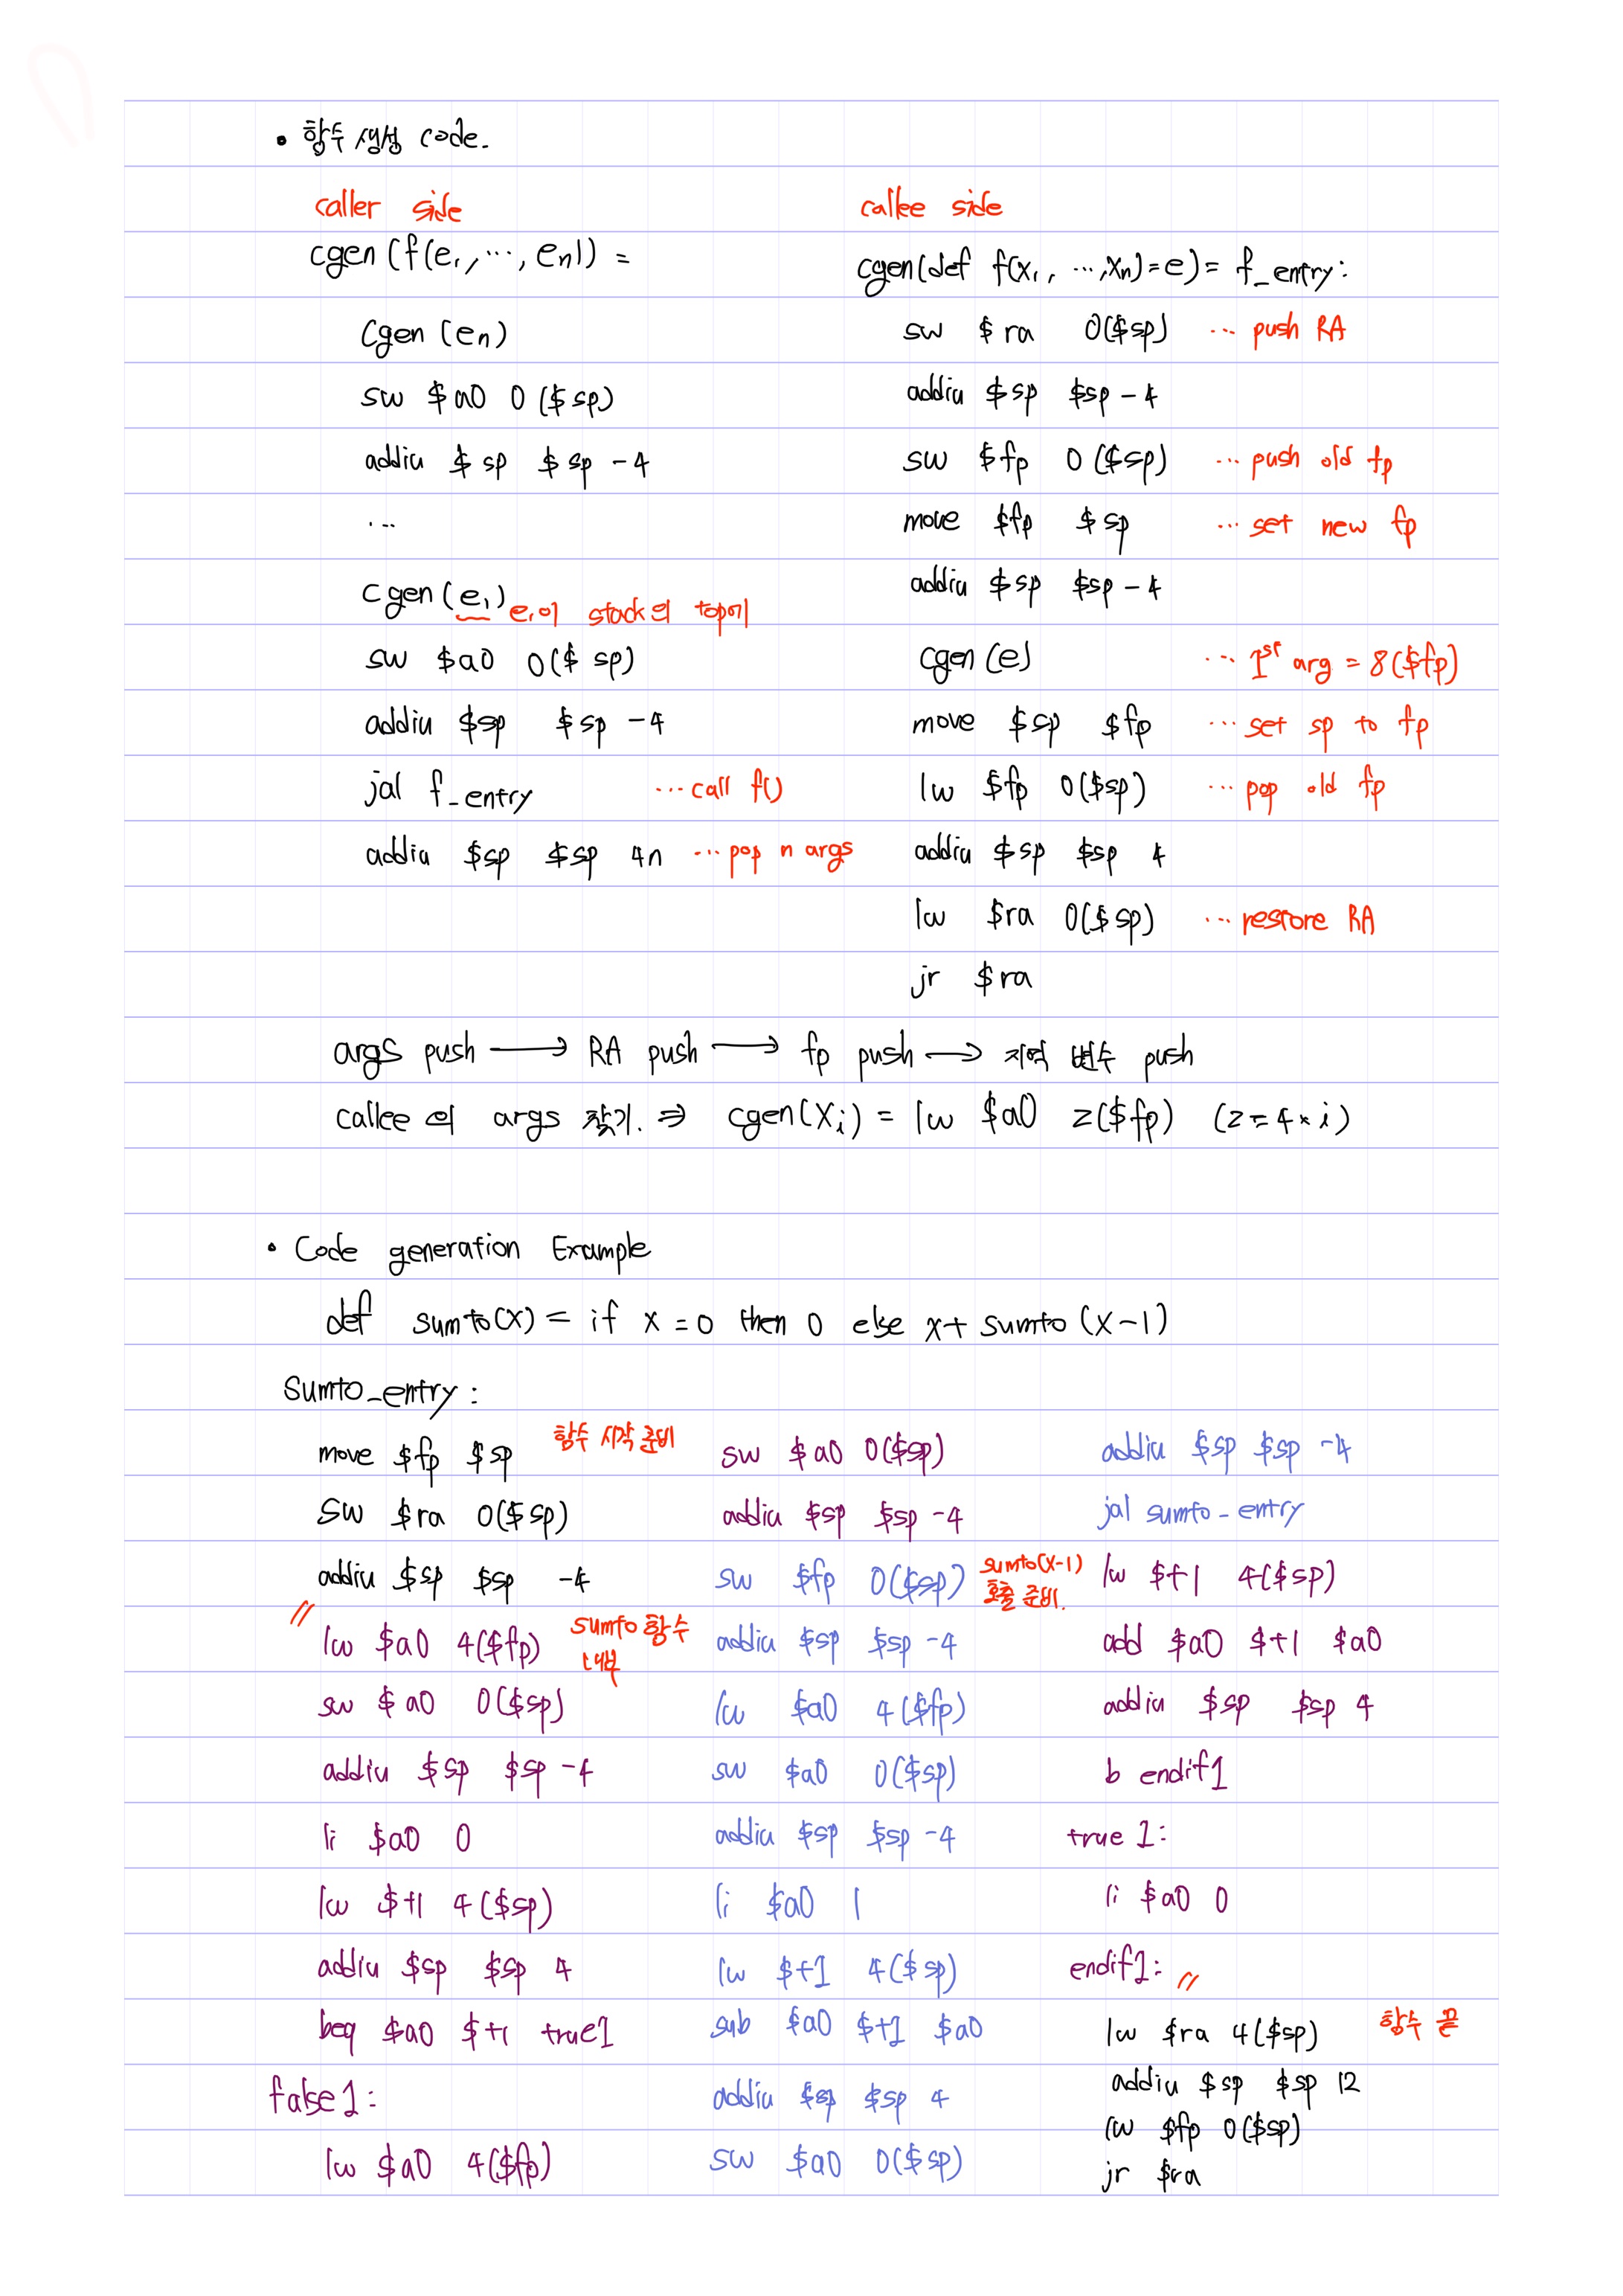 • 함수 생성 code.
caller side
cgen(f(e₁, ⋯, en)) =
cgen(en)
sw $a0 0($sp)
addiu $sp $sp -4
...
cgen(e₁) e₁이 stack의 top에
sw $a0 0($sp)
addiu $sp $sp -4
jal f_entry ...call f()
addiu $sp $sp 4n ...pop n args
callee side
cgen(def f(x₁, ⋯, xn)=e) = f_entry:
sw $ra 0($sp) ... push RA
addiu $sp $sp -4
sw $fp 0($sp) ...push old fp
move $fp $sp ...set new fp
addiu $sp $sp -4
cgen(e) ... 1st arg = 8($fp)
move $sp $fp ...set sp to fp
lw $fp 0($sp) ...pop old fp
addiu $sp $sp 4
lw $ra 0($sp) ...restore RA
jr $ra
args push ⟶ RA push ⟶ fp push ⟶ 지역 변수 push
callee의 args 찾기. ⇒ cgen(Xi) = lw $a0 z($fp) (z = 4 * i)
• Code generation Example
def sumto(x) = if x = 0 then 0 else x + sumto(x-1)
Sumto_entry:
move $fp $sp 함수 시작 준비
SW $ra 0($sp)
addiu $sp $sp -4
//
lw $a0 4($fp) sumto 함수 내부
sw $a0 0($sp)
addiu $sp $sp -4
li $a0 0
lw $t1 4($sp)
addiu $sp $sp 4
beq $a0 $t1 true1
false1:
lw $a0 4($fp)
sw $a0 0($sp)
addiu $sp $sp -4
sw $fp 0($sp) sumto(x-1) 호출 준비.
addiu $sp $sp -4
lw $a0 4($fp)
sw $a0 0($sp)
addiu $sp $sp -4
li $a0 1
lw $t1 4($sp)
sub $a0 $t1 $a0
addiu $sp $sp 4
sw $a0 0($sp)
addiu $sp $sp -4
jal sumto_entry
lw $t1 4($sp)
add $a0 $t1 $a0
addiu $sp $sp 4
b endif1
true 1:
li $a0 0
endif1: //
lw $ra 4($sp) 함수 끝
addiu $sp $sp 12
lw $fp 0($sp)
jr $ra